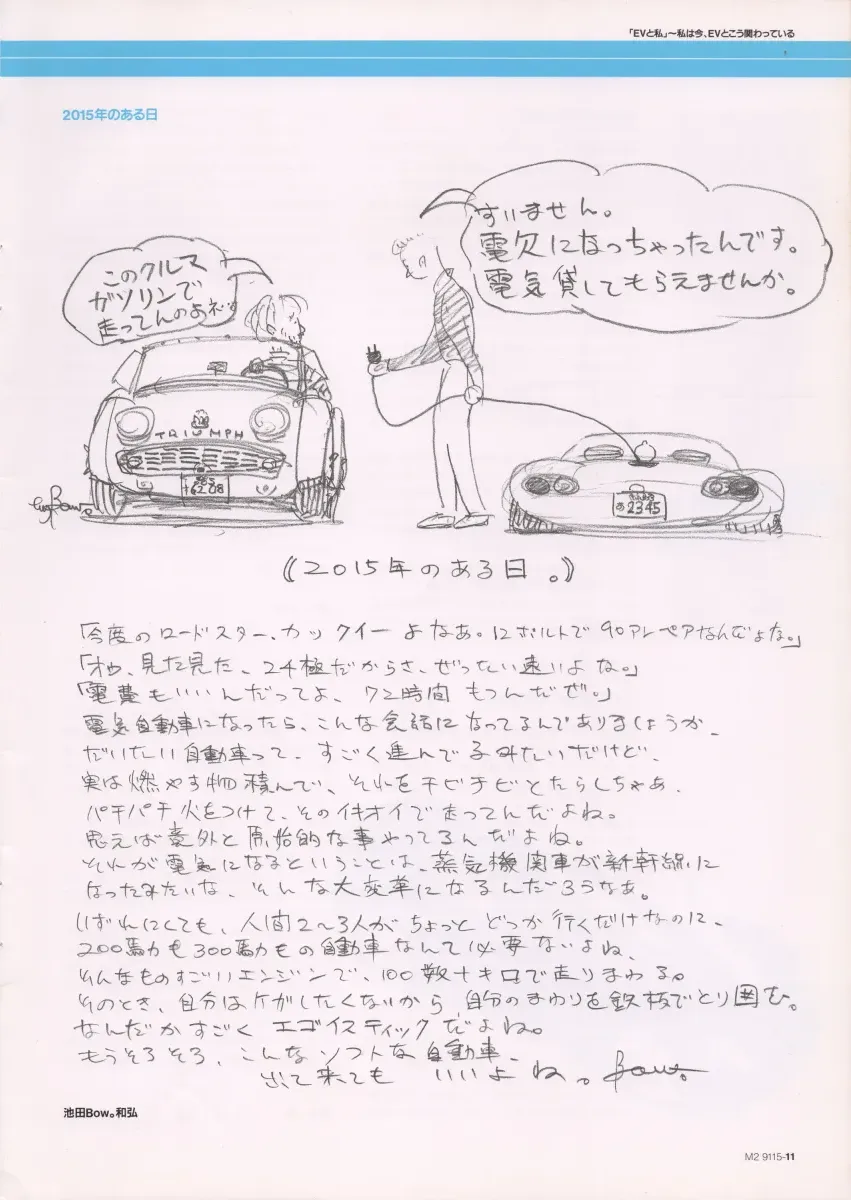 「EVと私」〜私は今、EVとこう関わっている
2015年のある日
このクルマ
ガソリンで
走ってんの
すいません。
電欠になっちゃったんです。
電気貸してもらえませんか。
TRIUMPH
6208
2345
Bow。
《2015年のある日。》
「今度のロードスター、カックイーよなあ。12ボルトで90アンペアなんだよな。」
「オゥ、見た見た、24極だからさ、ぜったい速いよな。」
「電費もいいんだってよ、72時間もつんだぜ。」
電気自動車になったら、こんな会話になってるんでありましょうか、
だいたい自動車って、すごく進んでるみたいだけど、
実は燃やす物積んで、それをチビチビとたらしちゃあ、
パチパチ火をつけて、そのイキオイで走ってんだよね。
思えば意外と原始的な事やってるんだよね。
それが電気になるということは、蒸気機関車が新幹線に
なったみたいな、そんな大変革になるんだろうなあ。
いずれにしても、人間2〜3人がちょっとどっか行くだけなのに、
200馬力も300馬力もの自動車なんて必要ないよね、
そんなものすごいエンジンで、100数十キロで走りまわる。
そのとき、自分はケガしたくないから、自分のまわりを鉄板でとり囲む。
なんだかすごくエゴイスティックだよね。
もうそろそろ、こんなソフトな自動車、
出て来てもいいよね。Bow。
池田Bow。和弘
M2 9115-11